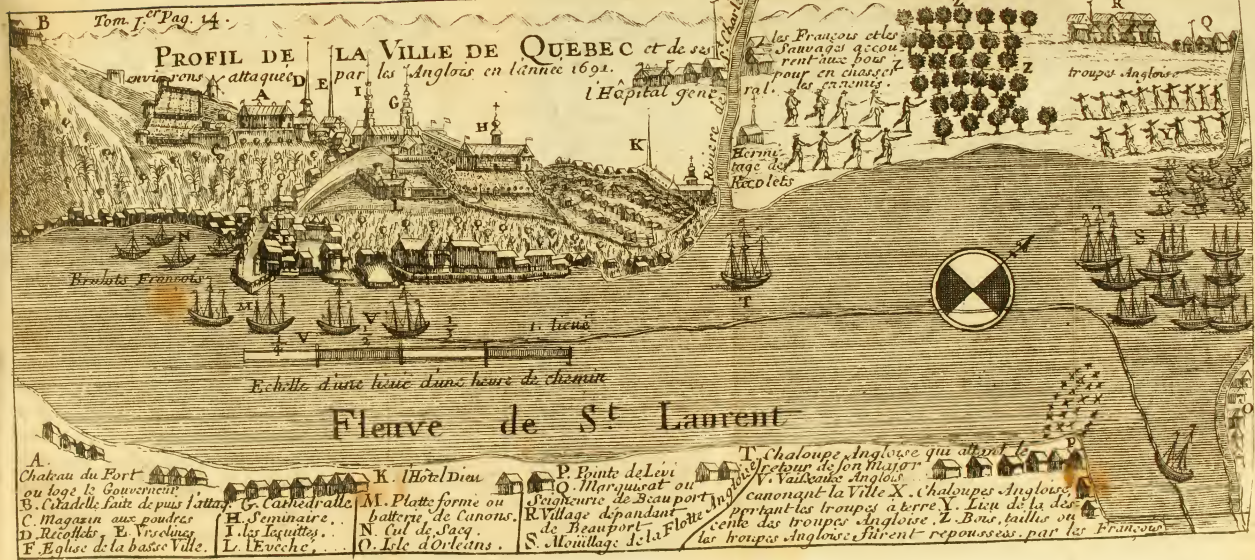 Tom I.er Pag. 14.
PROFIL DE LA VILLE DE QUEBEC et de ses
environs attaquée par les Anglois en l'année 1691.
l'Hôpital general.
les François et les
Sauvages accou
rent aux bois
pour en chasser
les ennemis.
troupes Angloise
Hermi
tage des
Recolets
Riviere de St. Charles
Brulots François
1. lieuë
Echelle d'une lieuë d'une heure de chemin
Fleuve de St. Laurent
A.
Chateau du Fort
ou loge le Gouverneur
B. Citadelle faite depuis l'attaq.
C. Magazin aux poudres
D. Recollets E. Urselines
F. Eglise de la basse Ville.
G. Cathedralle
H. Seminaire.
I. les Jesuittes.
L. l'Eveché.
K l'Hôtel Dieu
M. Platte forme ou
batterie de Canons.
N. Cul de Sacq.
O. Isle d'Orleans.
P. Pointe de Levi
Q. Marquisat ou
Seigneurie de Beauport
R. Village dépandant
de Beauport
S. Moüillage de la Flotte Angloise
T. Chaloupe Angloise qui attent le
retour de son Major
V. Vaisseaux Anglois
canonant la Ville X. Chaloupes Angloise,
portant les troupes à terre Y. Lieu de la des
cente des troupes Angloise. Z. Bois, taillis ou
les troupes Angloise furent repoussées par les François